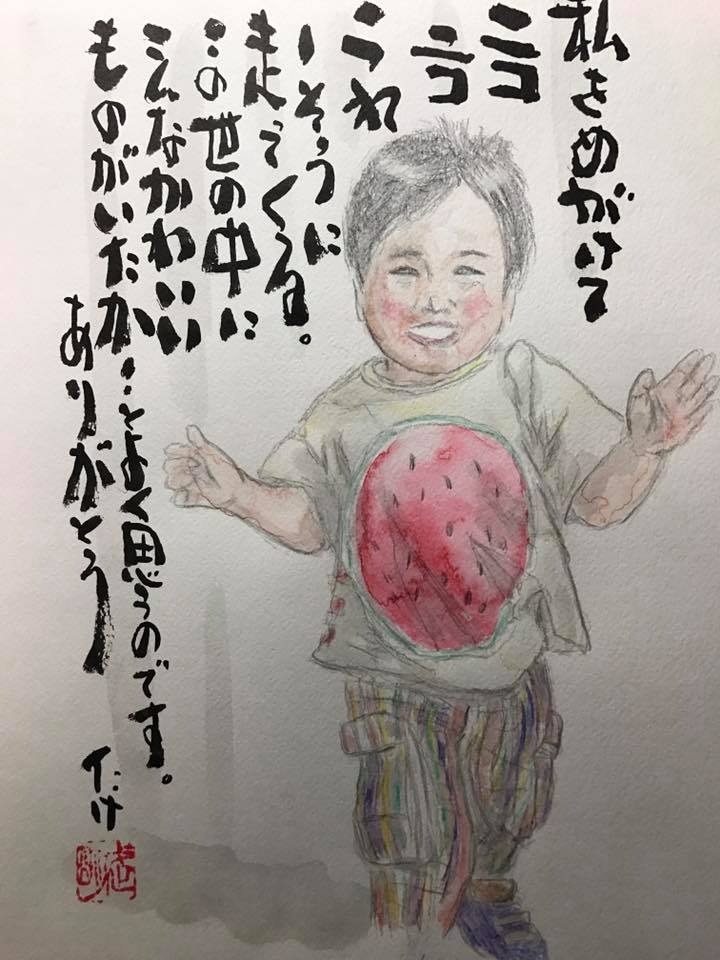 私をめがけて
ニコ
ニコ
うれ
しそうに
走ってくる。
この世の中に
こんなかわいい
ものがいたか…とよく思うのです。
ありがとう
たけ